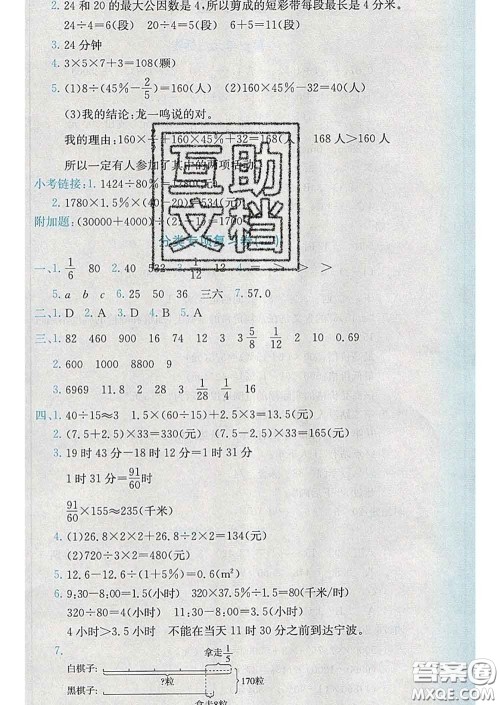 2. 24 和 20 的最大公因数是 4,所以剪成的短彩带每段最长是 4 分米。
24÷4=6(段) 20÷4=5(段) 6+5=11(段)
3. 24 分钟
4. 3×5×7+3=108(颗)
5. (1)8÷(45%-2/5)=160(人)
(3)我的结论:龙一鸣说的对。
我的理由:160× +160×45%+32=168(人) 168 人>160 人
所以一定有人参加了其中的两项活动。
小考链接:1. 1424÷80%=
2. 1780×1.5%×(40-20)=534(元)
附加题:(30000+4000)÷(21-1)=1700
互助
文档
一、1. 1/6 80 2. 40 532 1/12 12 4. = > > >
5. a b c 6. 25 50 36 三六 7. 57.0
二、1. D 2. A 3. D 4. B 5. A
三、1. 82 460 900 16 74 12 3 5/8 1/12 2 10 0.69
2. 600 1000 8800 9000
3. 6969 11.8 2 28 3 1/28 1/4 16
四、1. 40÷15≈3 1.5×(60÷15)+2.5×3=13.5(元)
2. (7.5+2.5)×33=330(元) (7.5-2.5)×33=165(元)
3. 19 时 43 分-18 时 12 分=1 时 31 分
1 时 31 分=91/60 时
91/60×155≈235(千米)
4. (1)26.8×2×2+26.8÷2×2=134(元)
(2)720÷3×2=480(元)
5. 12.6-12.6÷(1+5%)=0.6(m²)
6. 9:30-8:00=1.5(小时) 320×1/4÷(9:00-8:00)=80(千米/时)
320÷80=4(小时) 11:30-8:00=3.5(小时)
4 小时>3.5 小时 不能在当天 11 时 30 分之前到达宁波。
7.
拿走1/5
白棋子:
?粒
170粒
黑棋子:
拿走8粒
作业圈
MXQE.COM